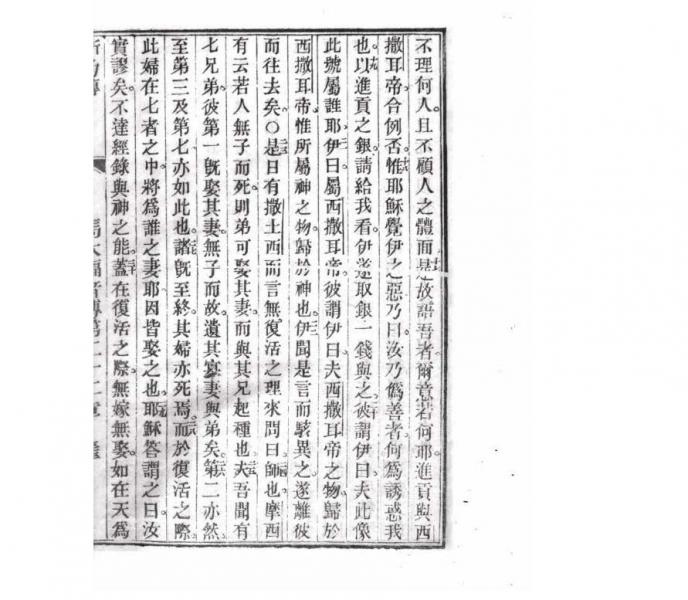 不理何人且不顧人之體面是故語吾者爾意若何耶進貢與西
撒耳帝合例否惟耶穌覺伊之惡乃曰汝乃僞善者何爲誘惑我
也以進貢之銀請給我看伊遂取銀一錢與之彼謂伊曰夫此像
此號屬誰耶伊曰屬西撒耳帝彼謂伊曰夫西撒耳帝之物歸於
西撒耳帝惟所屬神之物歸於神也伊聞是言而駭異之遂離彼
而往去矣〇是日有撒土西而言無復活之理來問曰師也摩西
有云若人無子而死則弟可娶其妻而與其兄起種也夫吾聞有
七兄弟彼第一旣娶其妻無子而故遺其寡妻與弟矣第二亦然
至第三及第七亦如此也諸旣至終其婦亦死焉而於復活之際
此婦在七者之中將爲誰之妻耶因皆娶之也耶穌答謂之曰汝
實謬矣不達經錄與神之能蓋在復活之際無嫁無娶如在天爲
馬太福音傳第二十二章